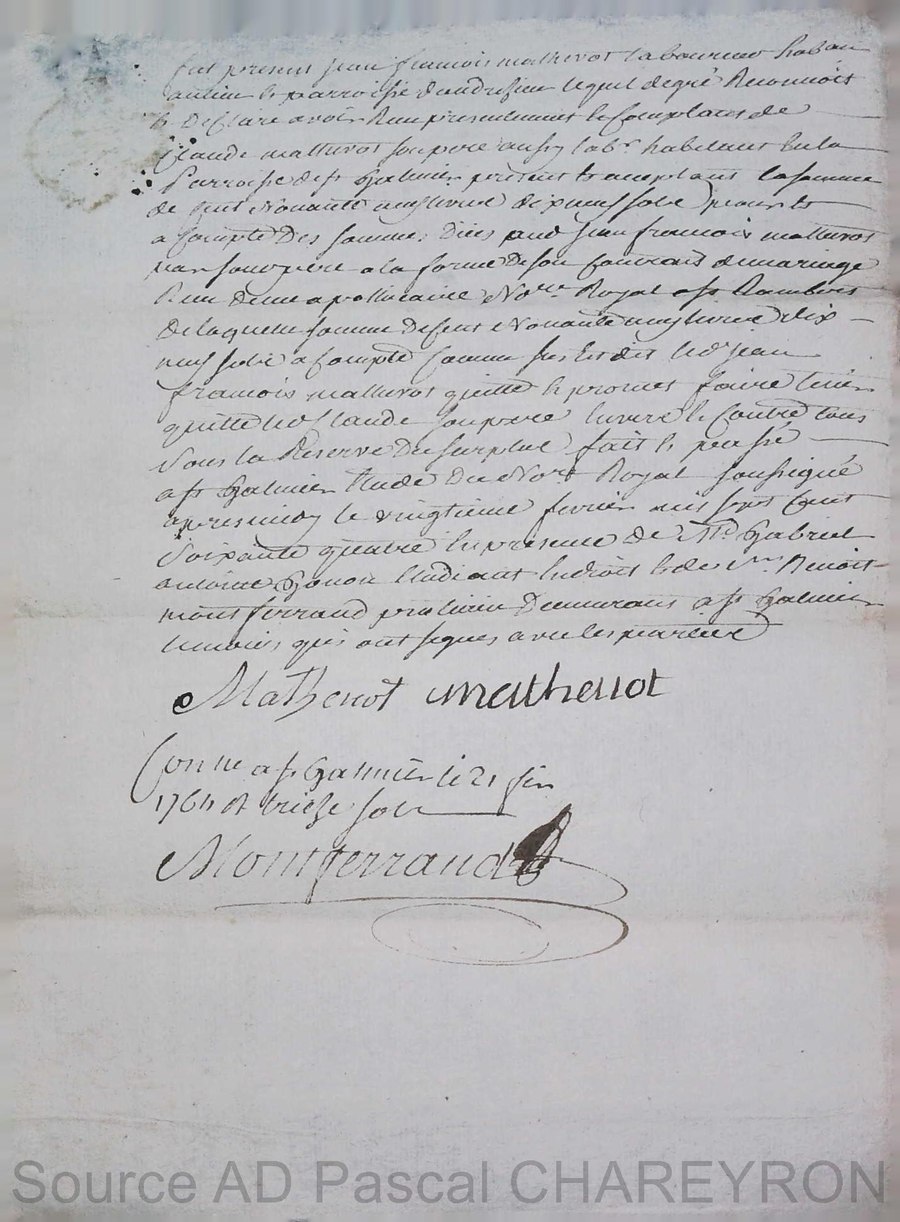 fut present jean francois mathevot laboureur habitant
au lieu et parroisse d'andresieu lequel de gré Reconnoit
et Declare avoir Reçu presentement et comptant de
Claude mathevot son pere aussy labr habitant en la
Parroisse de st Galmier present et acceptant la somme
de cent Nouante neuf livre dix neuf sols et
a compte Des somme Dües aud jean francois mathevot
par son pere a la forme De son contrat de mariage
Reçu De me apothicaire Nore Royal a st Rambert
De laquelle somme De cent Nouante neuf livre dix
neuf sols a compte comme sus est dit led jean
francois mathevot quitte et promet faire tenir
quitte led Claude son pere envers et contre tous
sous la Reserve Du surplus fait et passé
a st Galmier Etude Du Nore Royal soussigné
apres midy le vingtieme fevrier mil sept cent
soixante quatre en presence de Me Gabriel
antoine Etudiant en droit et de sr Benoit
montferrand praticien Demeurant a st Galmier
temoins qui ont signés avec les parties
Mathevot mathevot
Con le a st Galmier le 21 fer
1764 R treize sols
Montferrand
Source AD Pascal CHAREYRON